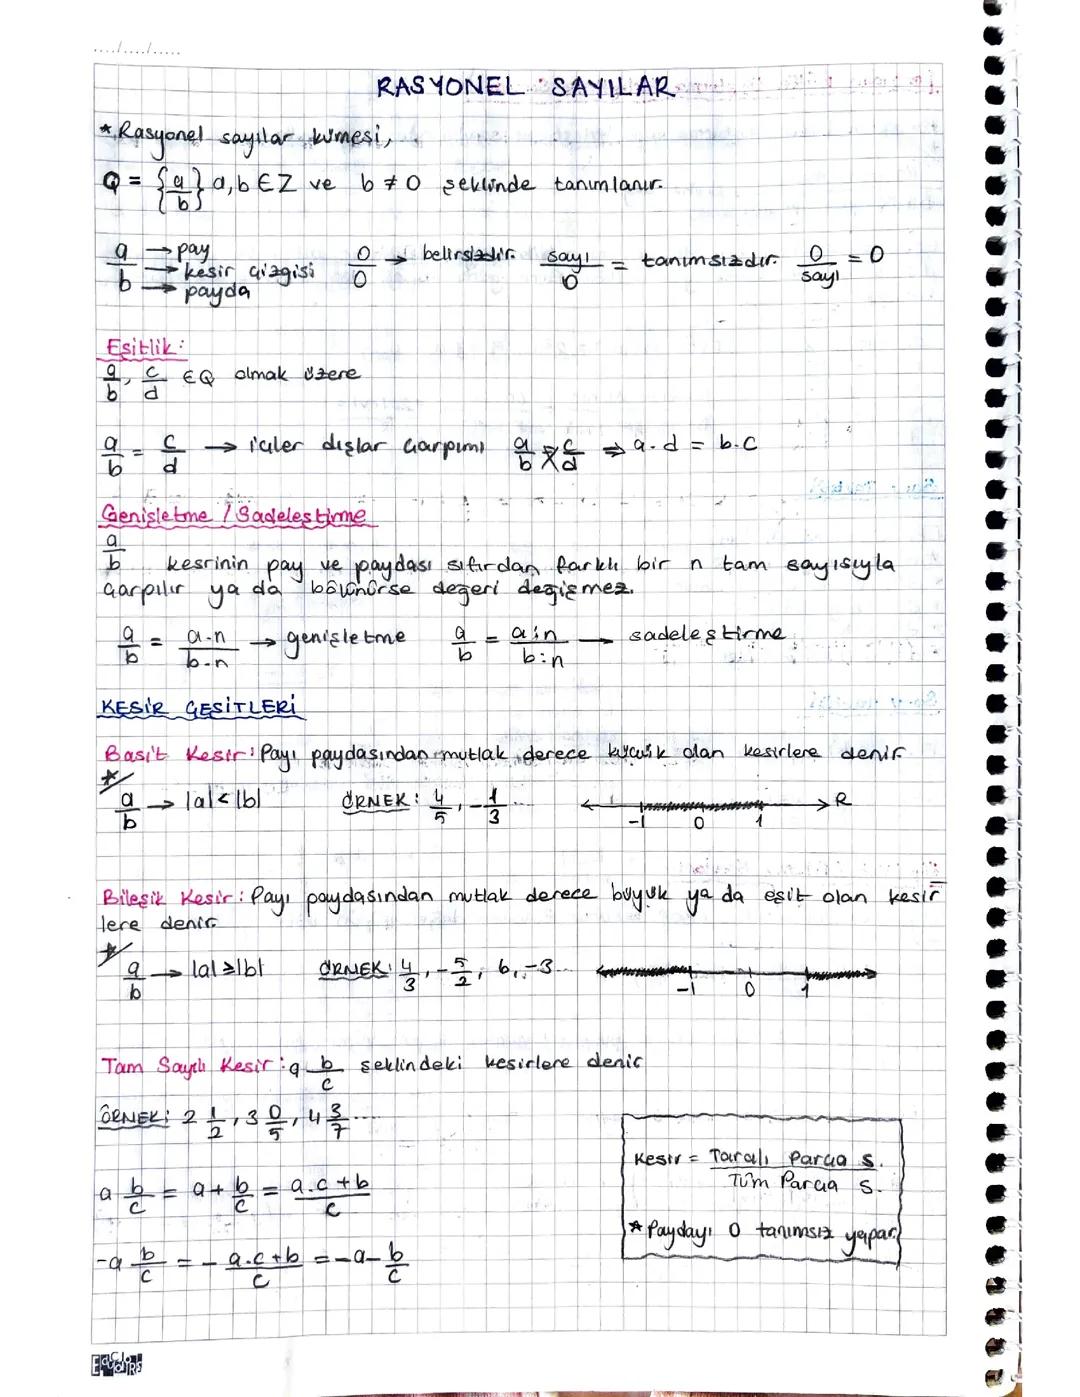 ..../..../.....
RASYONEL SAYILAR
* Rasyonel sayılar kümesi,
Q = {a/b} a,b ∈ Z ve b ≠ 0 şeklinde tanımlanır.
a/b → pay → kesir çizgisi → payda 0/0 → belirsizdir. sayı/0 = tanımsızdır. 0/sayı = 0
Eşitlik:
a/b, c/d ∈ Q olmak üzere
a/b = c/d → içler dışlar çarpımı a/b = c/d ⇒ a.d = b.c
Genişletme / Sadeleştirme
a/b kesrinin pay ve paydası sıfırdan farklı bir n tam sayısıyla
çarpılır ya da bölünürse değeri değişmez.
a/b = a.n/b.n → genişletme a/b = a:n/b:n → sadeleştirme
KESİR ÇEŞİTLERİ
Basit Kesir: Payı paydasından mutlak derece küçük olan kesirlere denir.
* a/b → |a|<|b| ÖRNEK: 4/5, -1/3 ... R
-1 0 1
Bileşik Kesir: Payı paydasından mutlak derece büyük ya da eşit olan kesir
lere denir.
* a/b → |a|≥|b| ÖRNEK: 4/3, -5/2, 6, -3... -1 0 1
Tam Sayılı Kesir: a b/c şeklindeki kesirlere denir
ÖRNEK: 2 1/2, 3 0/5, 4 3/7 ....
a b/c = a + b/c = a.c+b/c
-a b/c = - a.c+b/c = -a - b/c
Kesir = Taralı Parça S. / Tüm Parça S.
* Paydayı 0 tanımsız yapar.